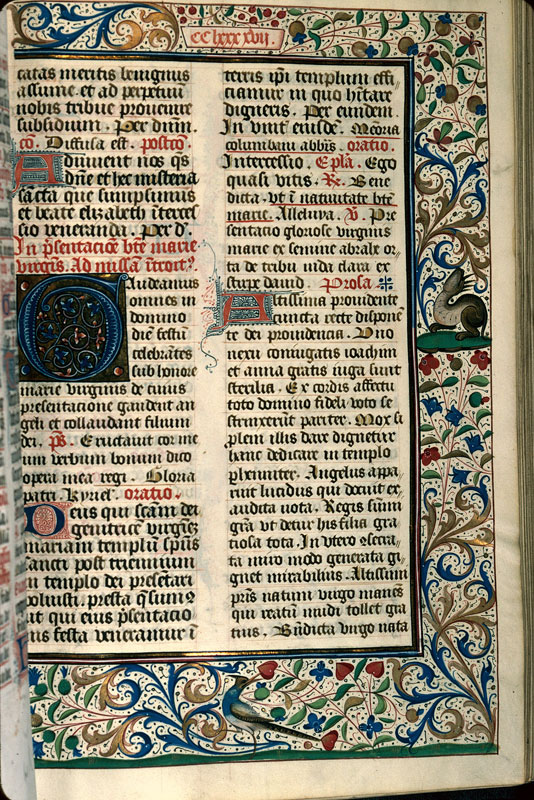 CC lxxx xvij
catas meritis benignus
assume. et ad perpetuū
nobis tribue prouenire
subsidium. Per dūm.
cō. Diffusa est. postcō.
Adiuuent nos qs
dñe et hec misteria
sācta que sumpsimus
et beate elizabeth īterces
sio veneranda. Per d'.
In p̄sentacioē btē marie
virgīs. Ad missā ītroit'.
Gaudeamus
omnes in
domino
diē festū
celebrātes
sub honore
marie virginis de cuius
presentacione gaudent an
geli et collaudant filium
dei. ps. Eructauit cor me
um verbum bonum dico
opera mea regi. Gloria
patri. Kyriel'. oratio.
Deus qui scām dei
genitricē virginē
mariam templū spūs
sancti post triennium
in templo dei presētari
voluisti. presta q̄sum9
ut qui eius p̄sentacio
nis festa veneramur ī
terris ip̄i templum effi
ciamur in quo hītare
digneris. Per eundem.
In vnit' eiusdē. Meōria
columbani abbīs. oratio.
Intercessio. Ep̄la. Ego
quasi vitis. R. Bene
dicta. vt ī natiuitate btē
marie. Alleluya. V. Pre
sentacio gloriose virginis
marie ex semine abrahe or
ta de tribu iuda clara ex
stirpe dauid. Prosa.
Altissima prouidente
cuncta recte dispone
te dei prouidencia. Vno
nexu coniugatis ioachim
et anna gratis iuga sunt
sterilia. Ex cordis affectu
toto domino fideli voto se
strinxerūt pariter. Mox si
plem illis dare dignetur
hanc dedicare in templo
phēniter. Angelus appa
ruit lucidus qui docuit ex
audita vota. Regis sūmi
grā vt detur his filia gra
ciosa tota. In vtero 9secra
ta miro modo generata gi
gnet mirabilius. Altissimi
pr̄is natum virgo manēs
qui reatū mūdi tollet gra
tius. Bn̄dicta virgo nata